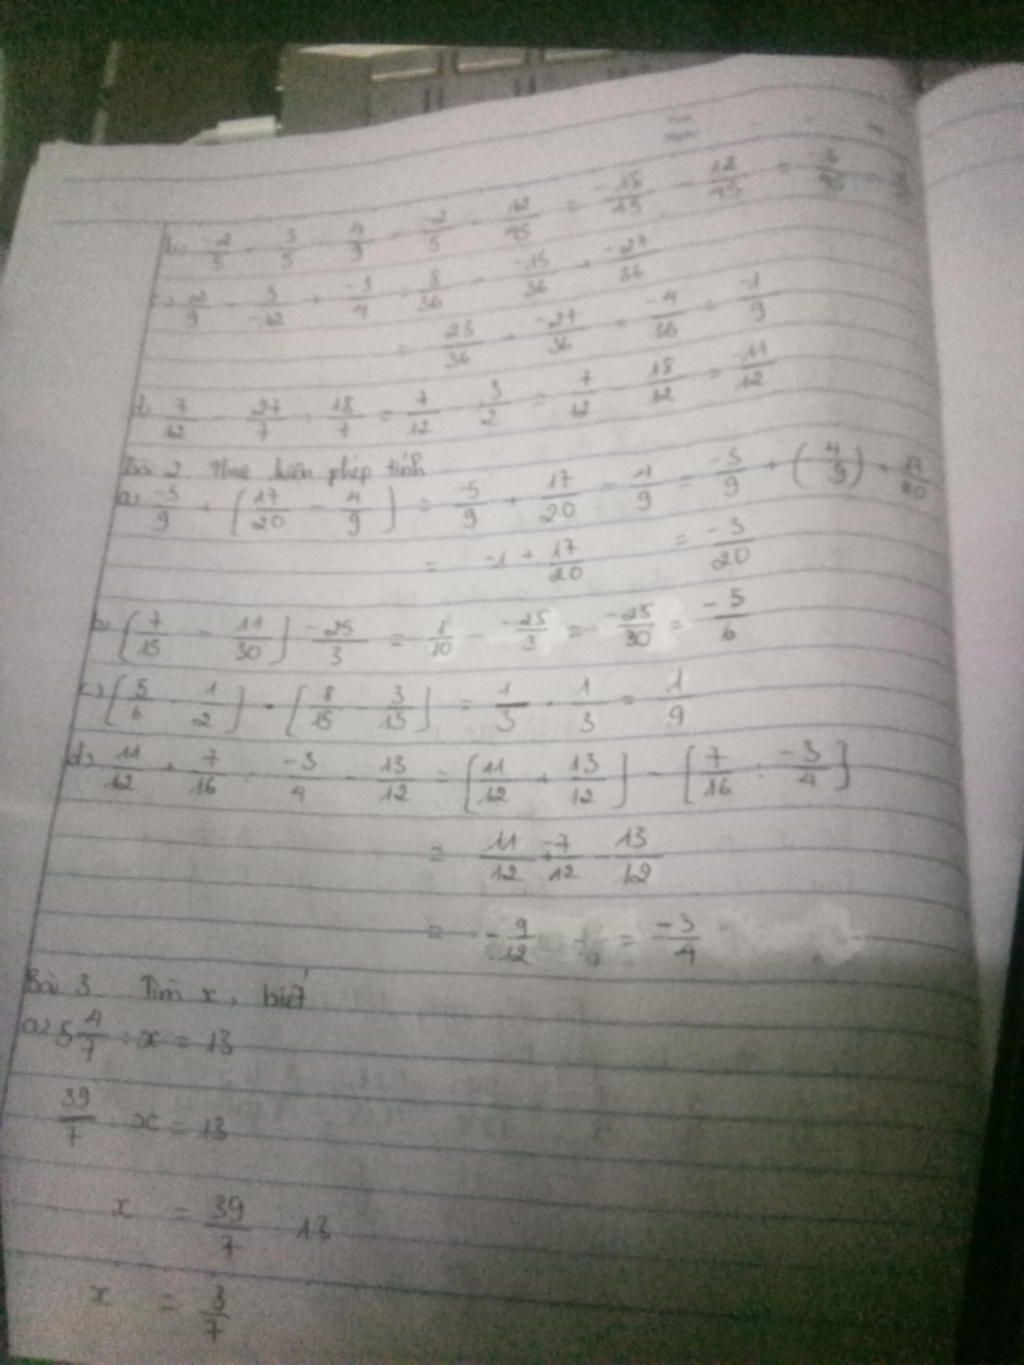 c) 2/9 - 5/-12 + -3/4 = 8/36 - -15/36 + -27/36
= 23/36 + -27/36 = -4/36 = -1/9
d) 7/12 - 27/7 : 18/7 = 7/12 - 3/2 = 7/12 - 18/12 = -11/12
Bài 2 Thực hiện phép tính
a) -5/9 + [17/20 - 4/9] = -5/9 + 17/20 - 4/9 = -5/9 + (-4/9) + 17/20
= -1 + 17/20 = -3/20
b) [7/15 - 11/30] -25/3 = 1/10 -25/3 = -25/30 = -5/6
c) [5/6 - 1/2] . [8/15 - 3/15] = 1/3 . 1/3 = 1/9
d) 11/12 + 7/16 : -3/4 - 13/12 = [11/12 + 13/12] - [7/16 : -3/4]
= 11/12 + -7/12 - 13/12
= -9/12 = -3/4
Bài 3 Tìm x, biết
a) 5 4/7 : x = 13
39/7 : x = 13
x = 39/7 13
x = 3/7